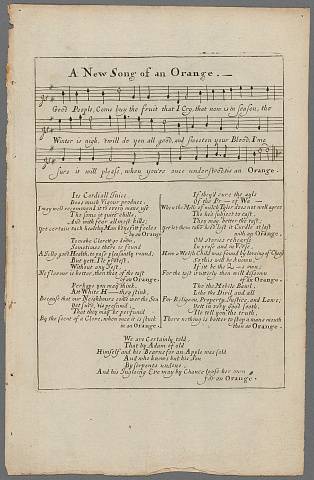 A New Song of an Orange.
Good People, Come buy the fruit that I Cry, that now is in season, tho
Winter is nigh, twill do you all good, and sweeten your Blood, I'me
sure it will please, when you're once understood tis an Orange.
Its Cordiall Juice
Does much Vigour produce,
I may well recommend it to every mans use
Tho some it quite chills,
And with fear allmost kills;
Yet certain each healthy Man benefit feeles
by an Orange
To make Claret go down,
Sometimes there is found
A Jolly good Health, to passe pleasantly round;
But yett, I'le protest,
Without any Jest,
No flavour is better then that of the tast
of an Orange.
Perhaps you may think
An White H they stink,
Because that our Neighbours come over the Sea
Yet sure, tis presum'd,
That they may be perfum'd
By the scent of a Clove, when once it is stuck
in an Orange.
If they'd cure the ayls
Of the Pr of Wa
When the Milk of milch Tyler does not well agree
Tho he's subject to cast,
They may better the tast,
Yet let them take heed lest it Curdle at last
with an Orange.
Old Stories rehearse
In prose and in Verse,
How a Welsh Child was found by loveing of Cheese
So this will be known
If it be the Q s own;
For the tast it utterly then will disowne
of an Orange.
Tho the Mobile Baul
Like the Divil and all
For Religion, Property, Justice, and Laws,
Yett in very good sooth,
I'le tell you the truth,
There nothing is better to stop a mans mouth
than an Orange.
We are Certainly told,
That by Adam of old
Himself and his Bearns for an Apple was sold
And who knows but his Son
By Serpents undone;
And his Jugleing Eve may by Chance loose her own
for an Orange.